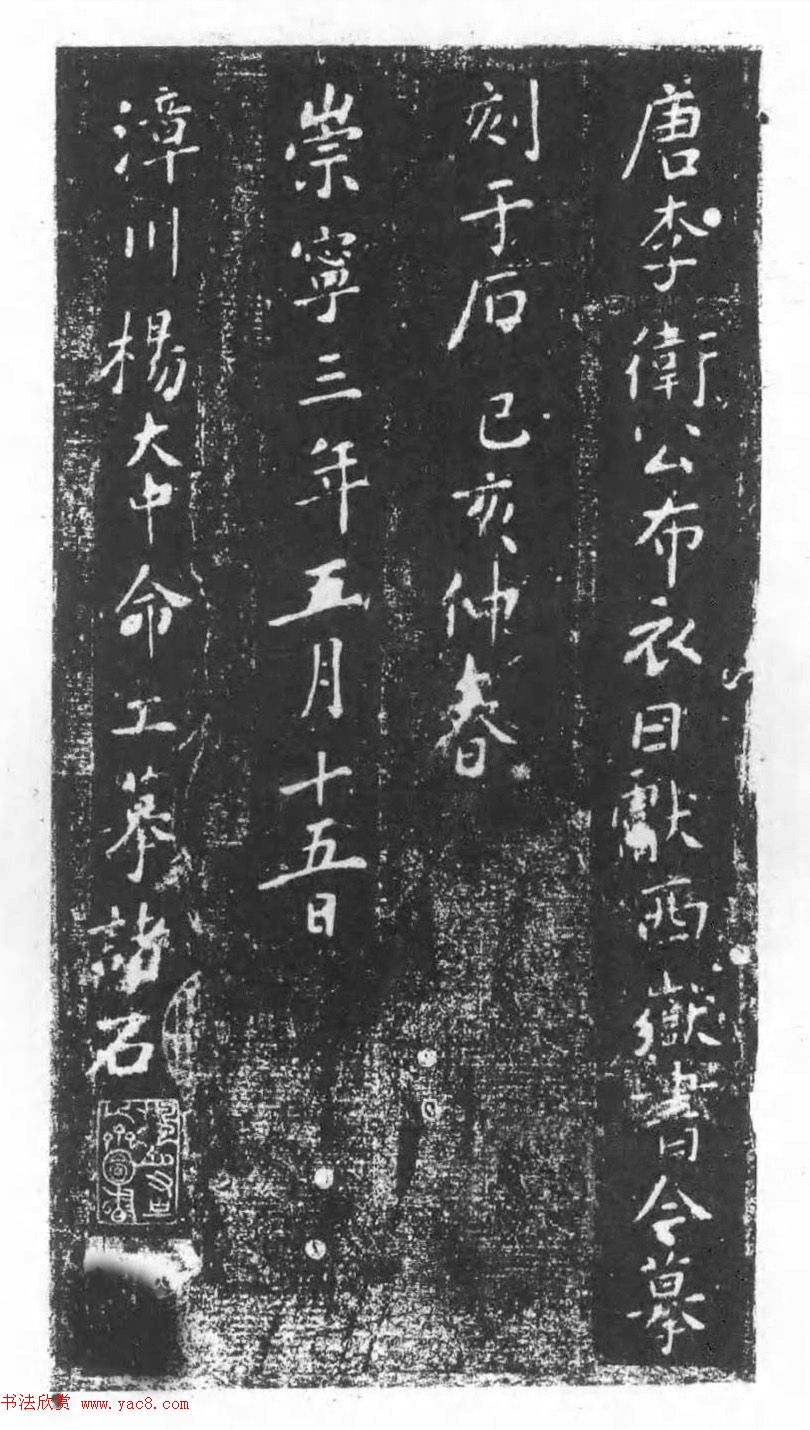 唐李衛公布衣日獻西嶽書今摹
刻于石己亥仲春
崇寧三年五月十五日
漳川楊大中命工摹諸石
书法欣赏 www.yac8.com